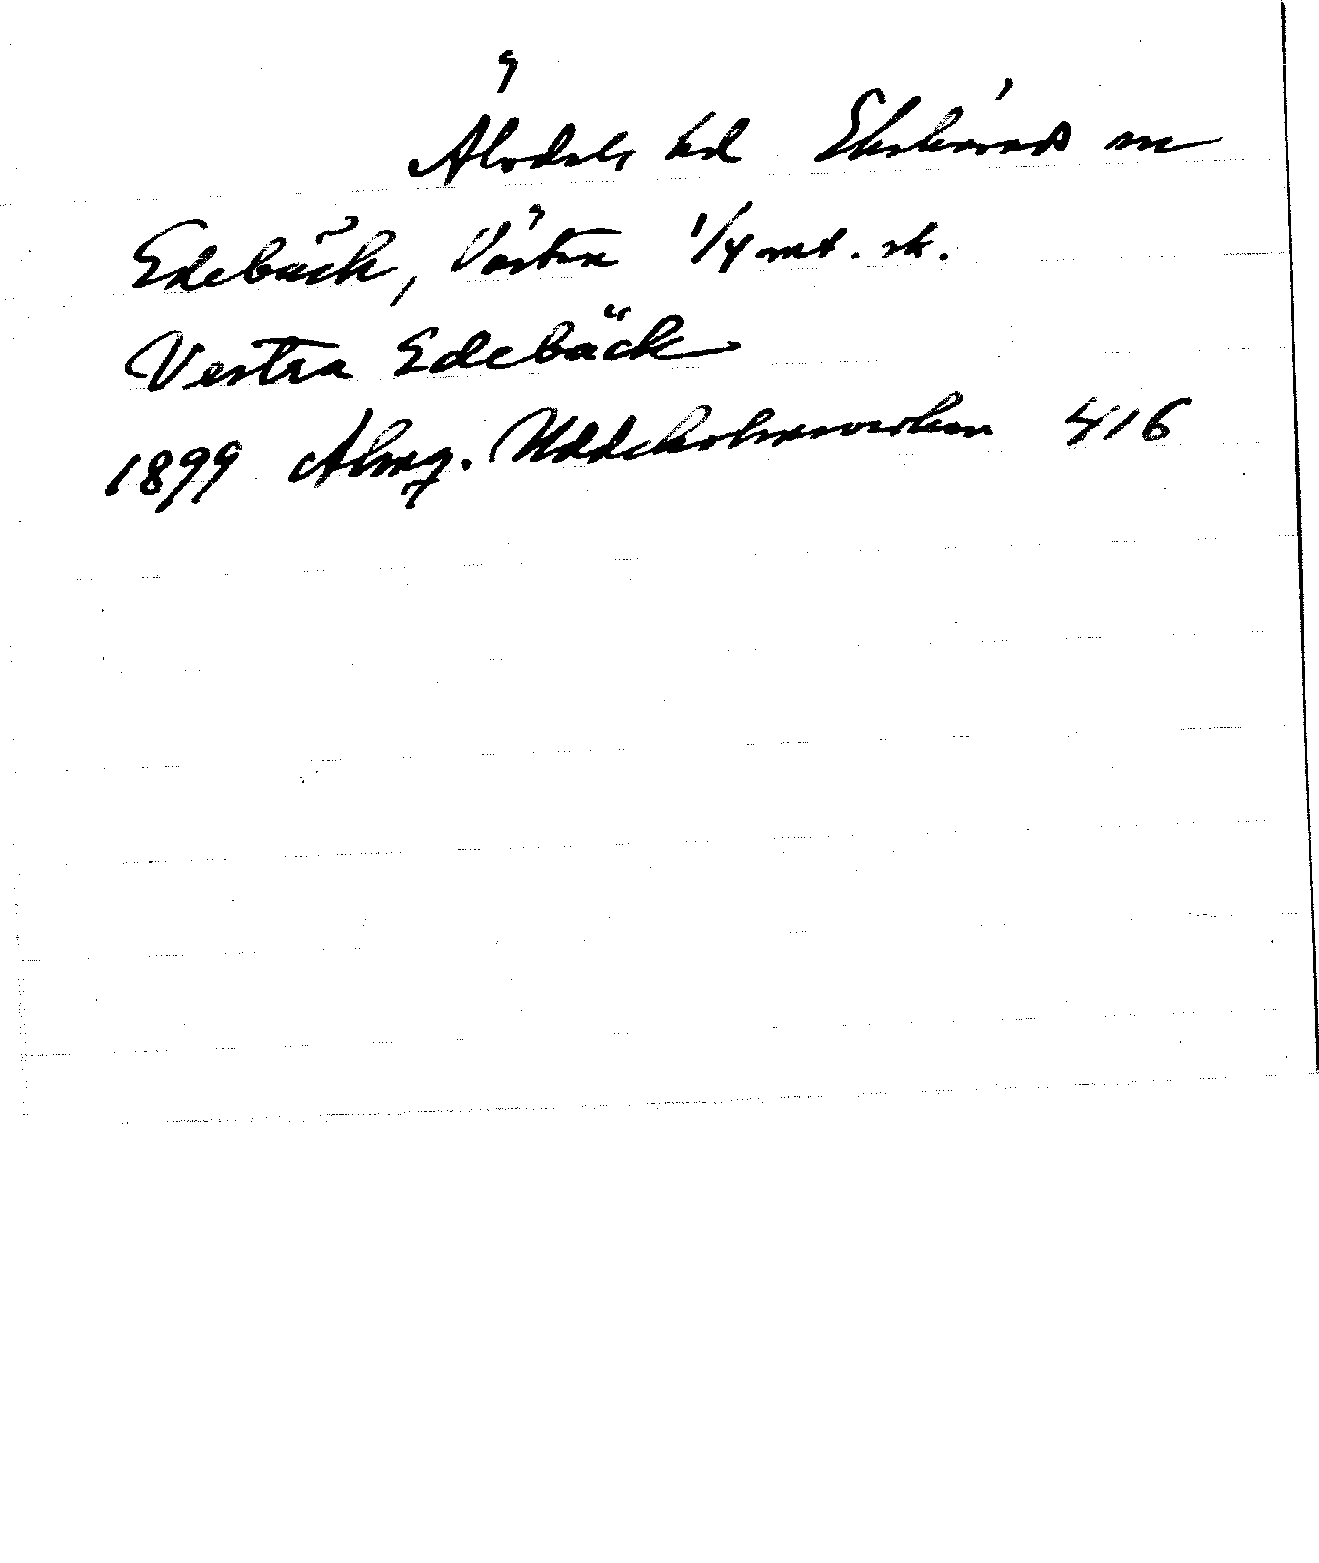 Älvdals hd Ekshärads sn
Edebäck, Västra 1/4 mt. sk.
Vestra Edebäck
1899 Almq. Uddeholmsverken 416